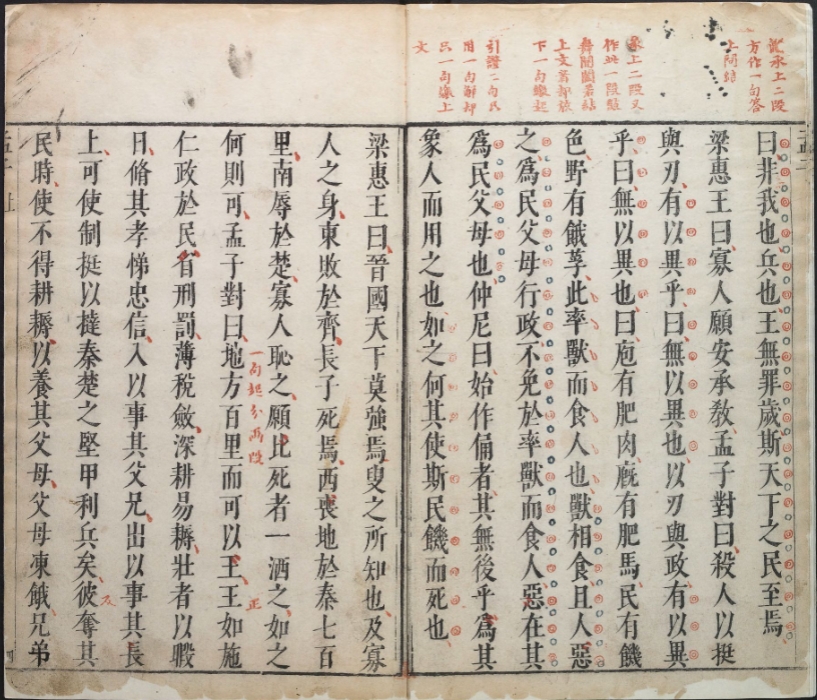 此承上二段
方作一句答
上問語
象上二段又
作此一段
上文
下一句
引證二句
用一句
只一句
文
曰非我也兵也王無罪歲斯天下之民至焉
梁惠王曰寡人願安承教孟子對曰殺人以挺
與刃有以異乎曰無以異也以刃與政有以異
乎曰無以異也曰庖有肥肉廐有肥馬民有饑
色野有餓莩此率獸而食人也獸相食且人惡
之爲民父母行政不免於率獸而食人惡在其
爲民父母也仲尼曰始作俑者其無後乎爲其
象人而用之也如之何其使斯民饑而死也
梁惠王曰晉國天下莫強焉叟之所知也及寡
人之身東敗於齊長子死焉西喪地於秦七百
里南辱於楚寡人恥之願比死者一洒之如之
何則可孟子對曰地方百里而可以王王如施
一句起分兩段
正
仁政於民省刑罰薄稅斂深耕易耨壯者以暇
日脩其孝悌忠信入以事其父兄出以事其長
上可使制挺以撻秦楚之堅甲利兵矣彼奪其
反
民時使不得耕耨以養其父母父母凍餓兄弟